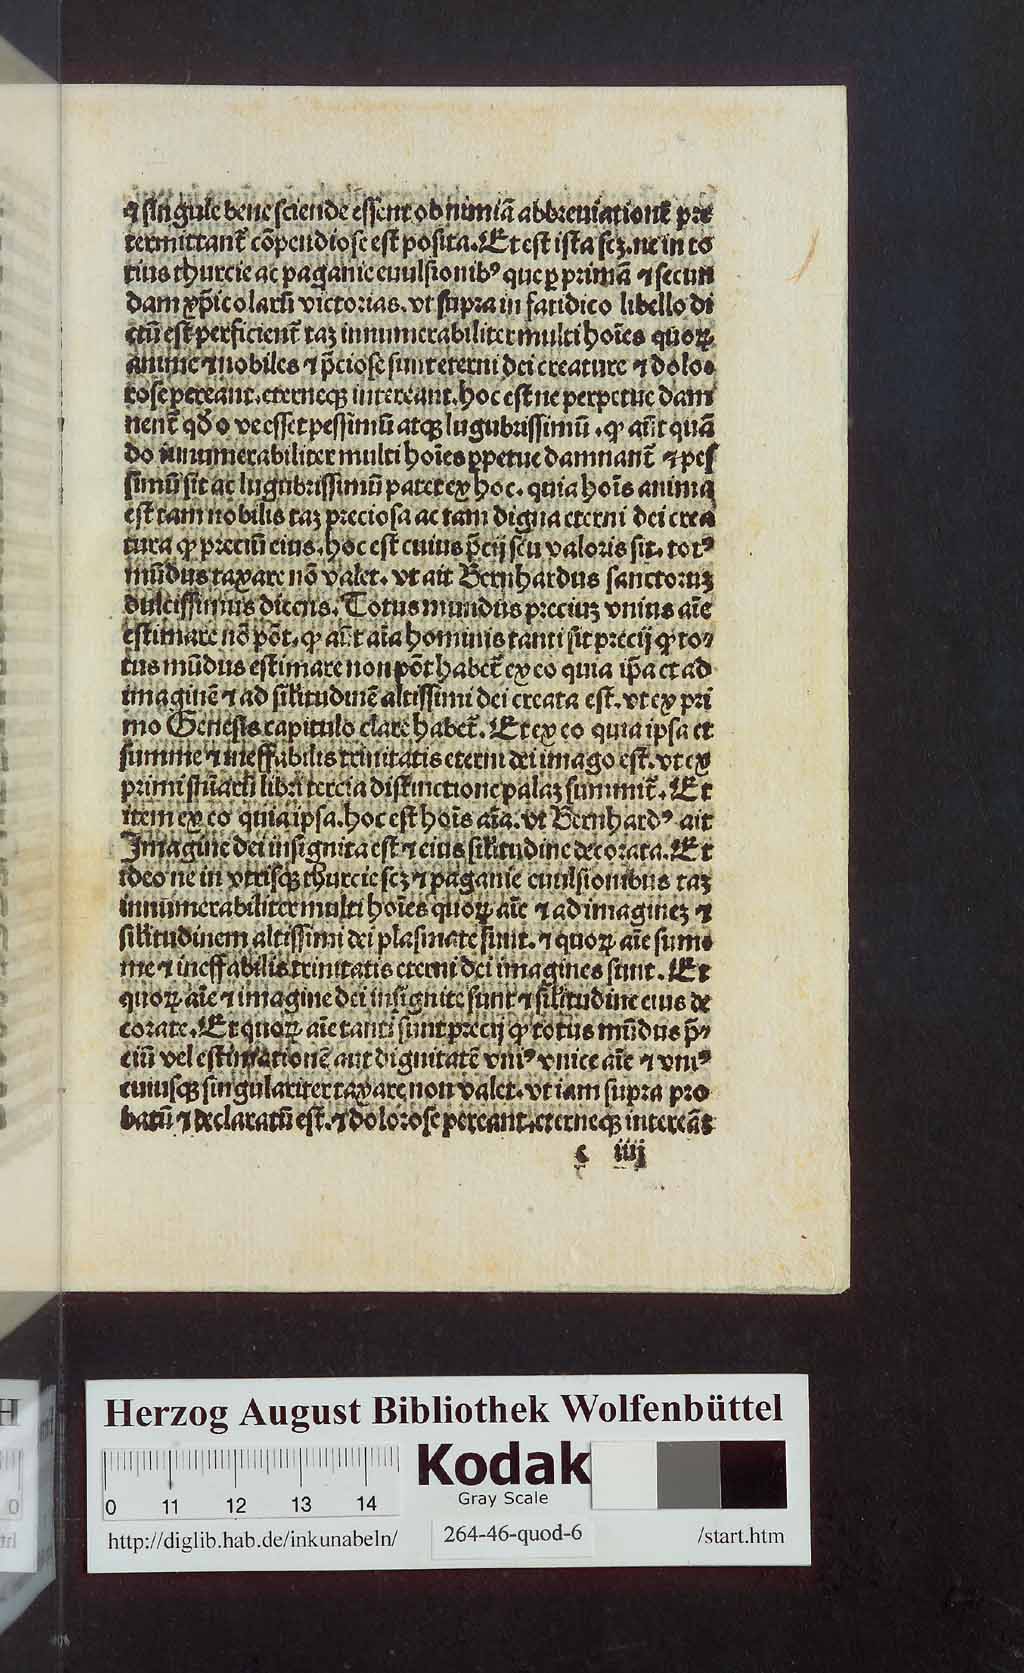 ⁊ singule bene sciende essent ob nimiā abbreuiationē pre
termittant᷑ cōpendiose est posita. Et est ista scꝫ. ne in to
tius thurcie ac paganie euulsionibꝰ que ꝑ primā ⁊ secun
dam xp̄icolarū victorias. vt supra in fatidico libello di
ctū est perficient᷑ taꝫ innumerabiliter multi hoīes quoꝝ
anime ⁊ nobiles ⁊ p̄ciose sunt eterni dei creature ⁊ dolo⸗
rose pereant. eterneqꝫ intereant. hoc est ne perpetue dam
nent᷑ qđ o ve esset pessimū atqꝫ lugubrissimū. ꝙ aūt quā
do innumerabiliter multi hoīes ꝑpetue damnant᷑ ⁊ pes
simū sit ac lugubrissimū patet ex hoc. quia hoīs anima
est tam nobilis taꝫ preciosa ac tam digna eterni dei crea
tura ꝙ preciū eius. hoc est cuius p̄cij seu valoris sit. totꝰ
mūdus taxare nō valet. vt ait Bernhardus sanctoruꝫ
dulcissimus dicens. Totus mundus preciuꝫ vnius aīe
estimare nō pōt. ꝙ aūt aīa hominis tanti sit precij ꝙ to⸗
tus mūdus estimare non pōt habet᷑ ex eo quia ip̄a et ad
imaginē ⁊ ad sīlitudinē altissimi dei creata est. vt ex pri
mo Genesis capitulo clare habet᷑. Et ex eo quia ipsa et
summe ⁊ ineffabilis trinitatis eterni dei imago est. vt ex
primi sniārū libri tercia distinctione palaꝫ summit᷑. Et
item ex eo quia ipsa. hoc est hoīs aīa. vt Bernhardꝰ ait
Imagine dei insignita est ⁊ eius sīlitudine decorata. Et
ideo ne in vtrisqꝫ thurcie scꝫ ⁊ paganie euulsionibus taꝫ
innumerabiliter multi hoīes quoꝝ aīe ⁊ ad imagineꝫ ⁊
sīlitudinem altissimi dei plasmate sunt. ⁊ quoꝝ aīe sum⸗
me ⁊ ineffabilis trinitatis eterni dei imagines sunt. Et
quoꝝ aīe ⁊ imagine dei insignite sunt ⁊ sīlitudine eius de
corate. Et quoꝝ aīe tanti sunt precij ꝙ totus mūdus p̄⸗
ciū vel estimationē aut dignitatē vniꝰ vnice aīe ⁊ vniꝰ
cuiusqꝫ singulariter taxare non valet. vt iam supra pro
batū ⁊ declaratū est. ⁊ dolorose pereant. eterneqꝫ intereāt
c iiij
Herzog August Bibliothek Wolfenbüttel
Kodak
Gray Scale
0 11 12 13 14
http://diglib.hab.de/inkunabeln/ 264-46-quod-6 /start.htm